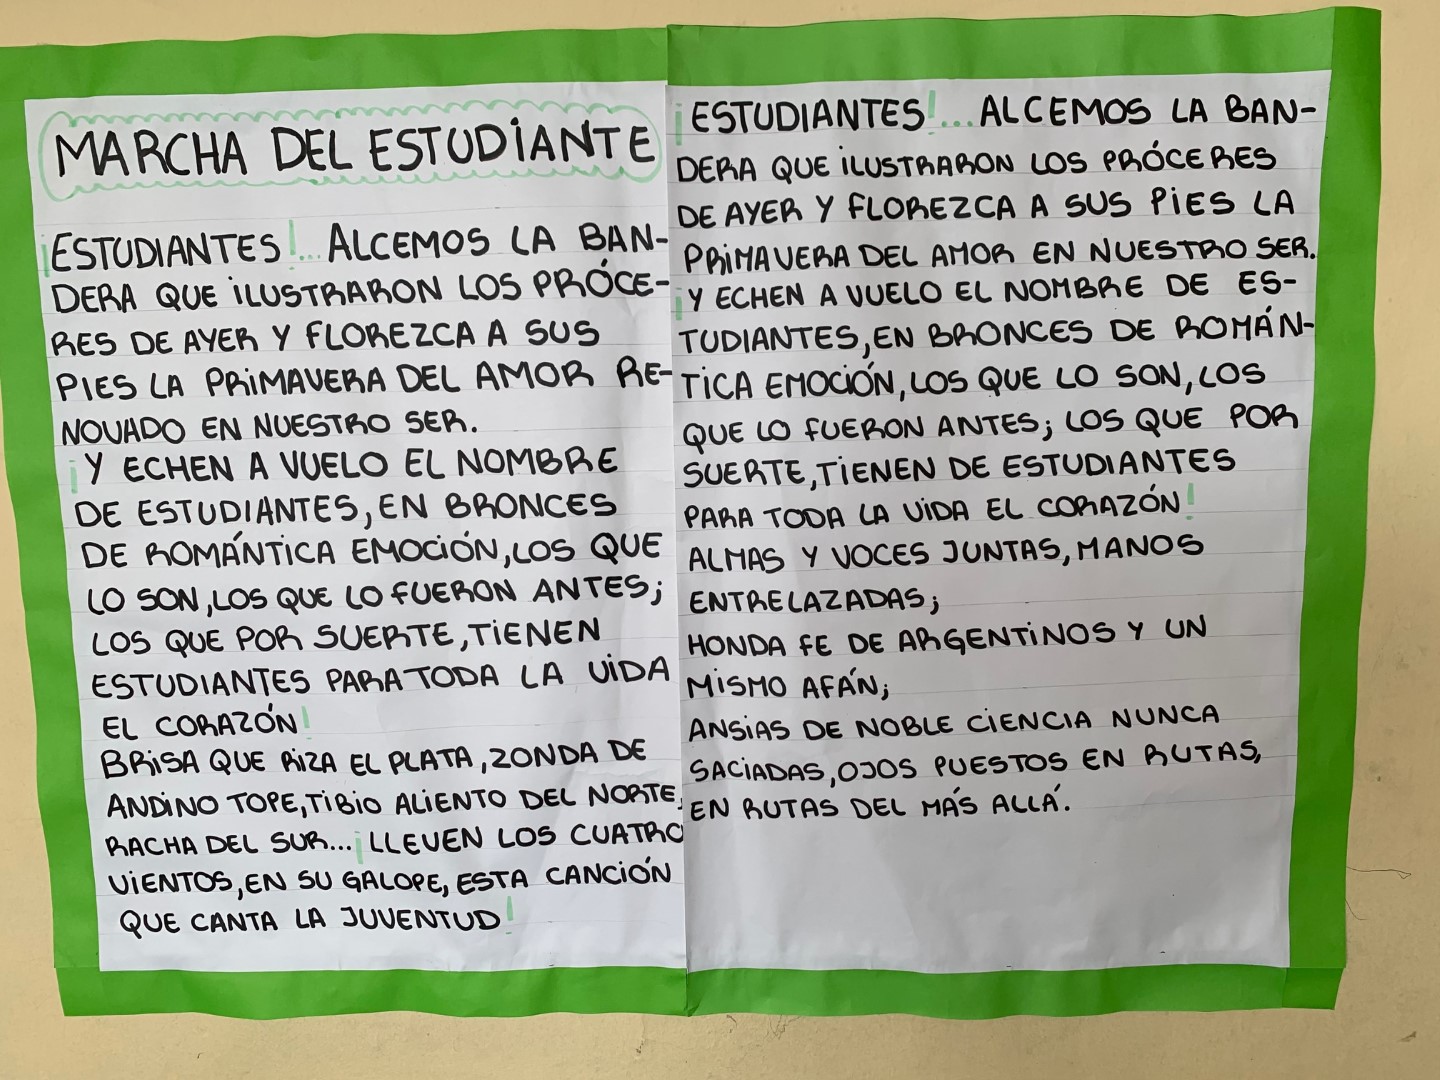 MARCHA DEL ESTUDIANTE
¡ESTUDIANTES!... ALCEMOS LA BAN-
DERA QUE ILUSTRARON LOS PRÓCE-
RES DE AYER Y FLOREZCA A SUS
PIES LA PRIMAVERA DEL AMOR RE-
NOVADO EN NUESTRO SER.
¡Y ECHEN A VUELO EL NOMBRE
DE ESTUDIANTES, EN BRONCES
DE ROMÁNTICA EMOCIÓN, LOS QUE
LO SON, LOS QUE LO FUERON ANTES;
LOS QUE POR SUERTE, TIENEN
ESTUDIANTES PARA TODA LA VIDA
EL CORAZÓN!
BRISA QUE RIZA EL PLATA, ZONDA DE
ANDINO TOPE, TIBIO ALIENTO DEL NORTE,
RACHA DEL SUR... ¡LLEVEN LOS CUATRO
VIENTOS, EN SU GALOPE, ESTA CANCIÓN
QUE CANTA LA JUVENTUD!
¡ESTUDIANTES!... ALCEMOS LA BAN-
DERA QUE ILUSTRARON LOS PRÓCERES
DE AYER Y FLOREZCA A SUS PIES LA
PRIMAVERA DEL AMOR EN NUESTRO SER.
¡Y ECHEN A VUELO EL NOMBRE DE ES-
TUDIANTES, EN BRONCES DE ROMÁN-
TICA EMOCIÓN, LOS QUE LO SON, LOS
QUE LO FUERON ANTES; LOS QUE POR
SUERTE, TIENEN DE ESTUDIANTES
PARA TODA LA VIDA EL CORAZÓN!
ALMAS Y VOCES JUNTAS, MANOS
ENTRELAZADAS;
HONDA FE DE ARGENTINOS Y UN
MISMO AFÁN;
ANSIAS DE NOBLE CIENCIA NUNCA
SACIADAS, OJOS PUESTOS EN RUTAS,
EN RUTAS DEL MÁS ALLÁ.